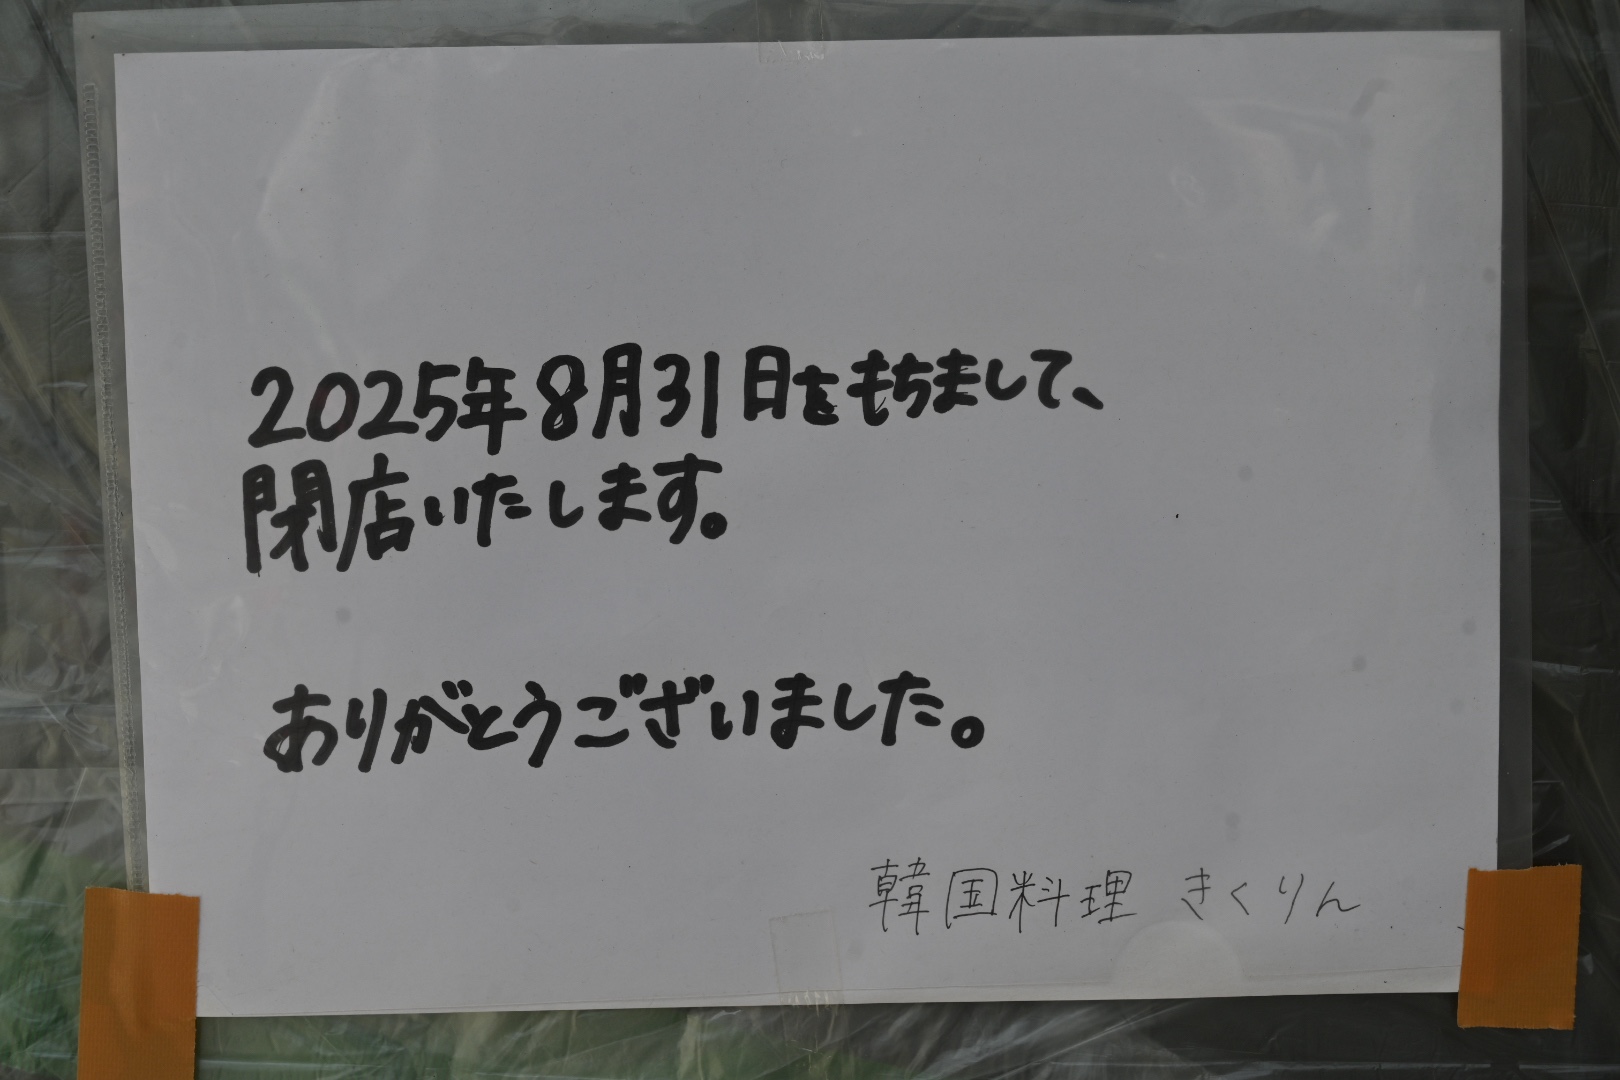 2025年8月31日をもちまして、
閉店いたします。
ありがとうございました。
韓国料理 きくりん